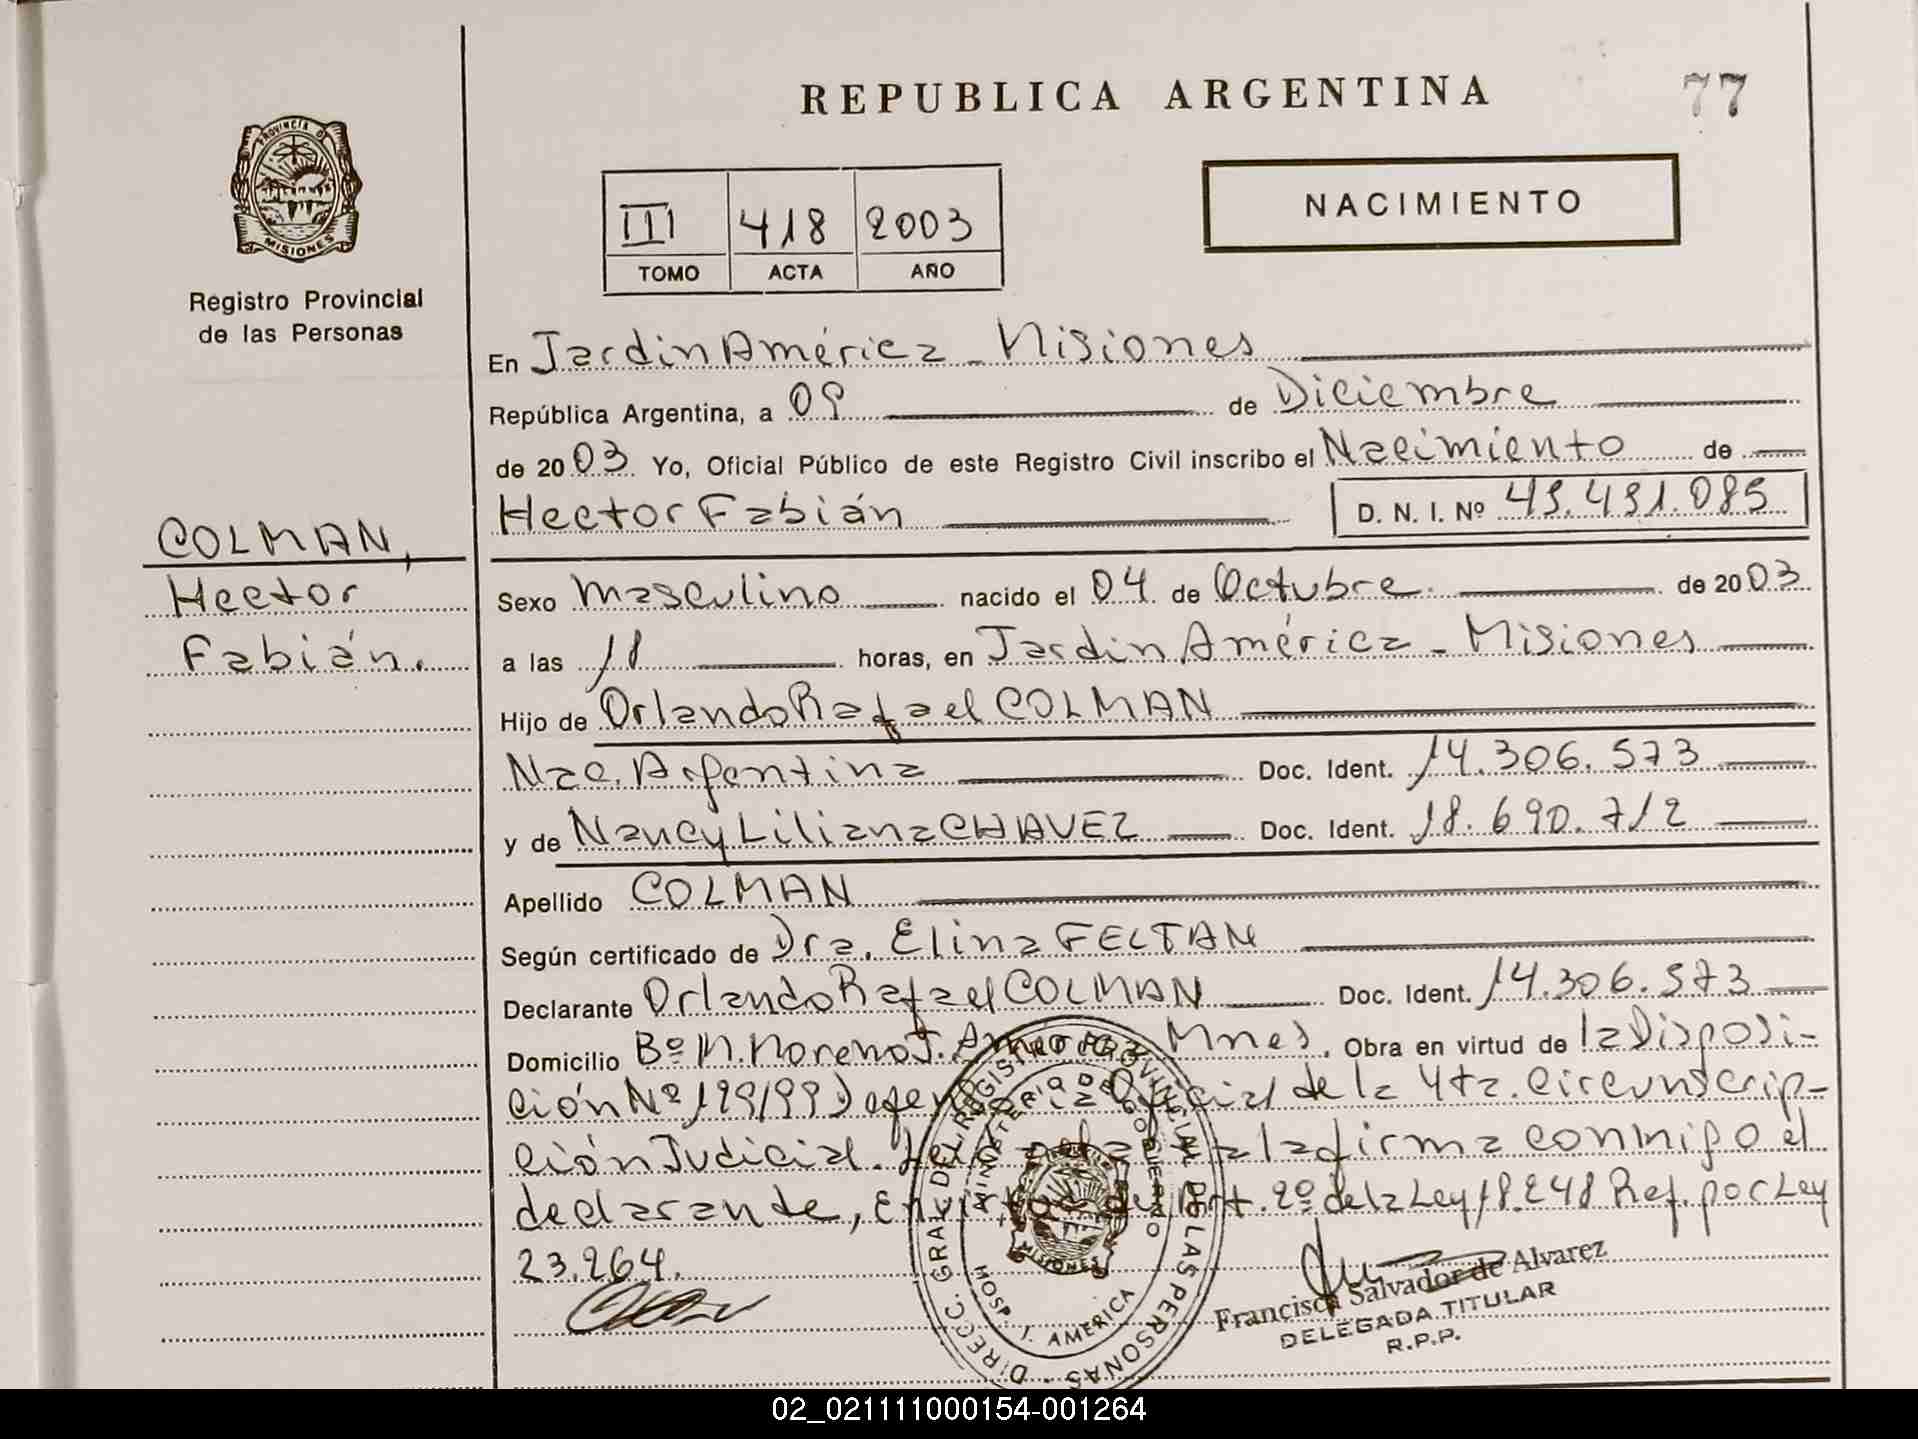 REPUBLICA ARGENTINA
77
PROVINCIA DE
MISIONES
Registro Provincial
de las Personas
III 418 2003
TOMO ACTA AÑO
NACIMIENTO
En Jardin América - Misiones
República Argentina, a 09 de Diciembre
de 2003 Yo, Oficial Público de este Registro Civil inscribo el Nacimiento de
Hector Fabián D. N. I. Nº 45.431.085
COLMAN,
Hector
Fabián.
Sexo Masculino nacido el 04 de Octubre. de 2003
a las 18 horas, en Jardin América - Misiones
Hijo de Orlando Rafael COLMAN
Nac. Argentina Doc. Ident. 14.306.573
y de Nancy Liliana CHAVEZ Doc. Ident. 18.690.712
Apellido COLMAN
Según certificado de Dra. Elina FELTAN
Declarante Orlando Rafael COLMAN Doc. Ident. 14.306.573
Domicilio Bº M. Moreno J. América Mnes. Obra en virtud de la Disposi-
ción Nº 199/99 Defensoria Oficial de la 4ta. Circunscrip-
ción Judicial. Leida la firma conmigo el
declarante, En virtud de Art. 2º de la Ley 18.248 Ref. por Ley
23.264.
DIRECC. GRAL. DEL REGISTRO PROVINCIAL DE LAS PERSONAS
MINISTERIO DE GOBIERNO
MISIONES
HOSP. J. AMERICA
Francisca Salvador de Alvarez
DELEGADA TITULAR
R.P.P.
02_021111000154-001264